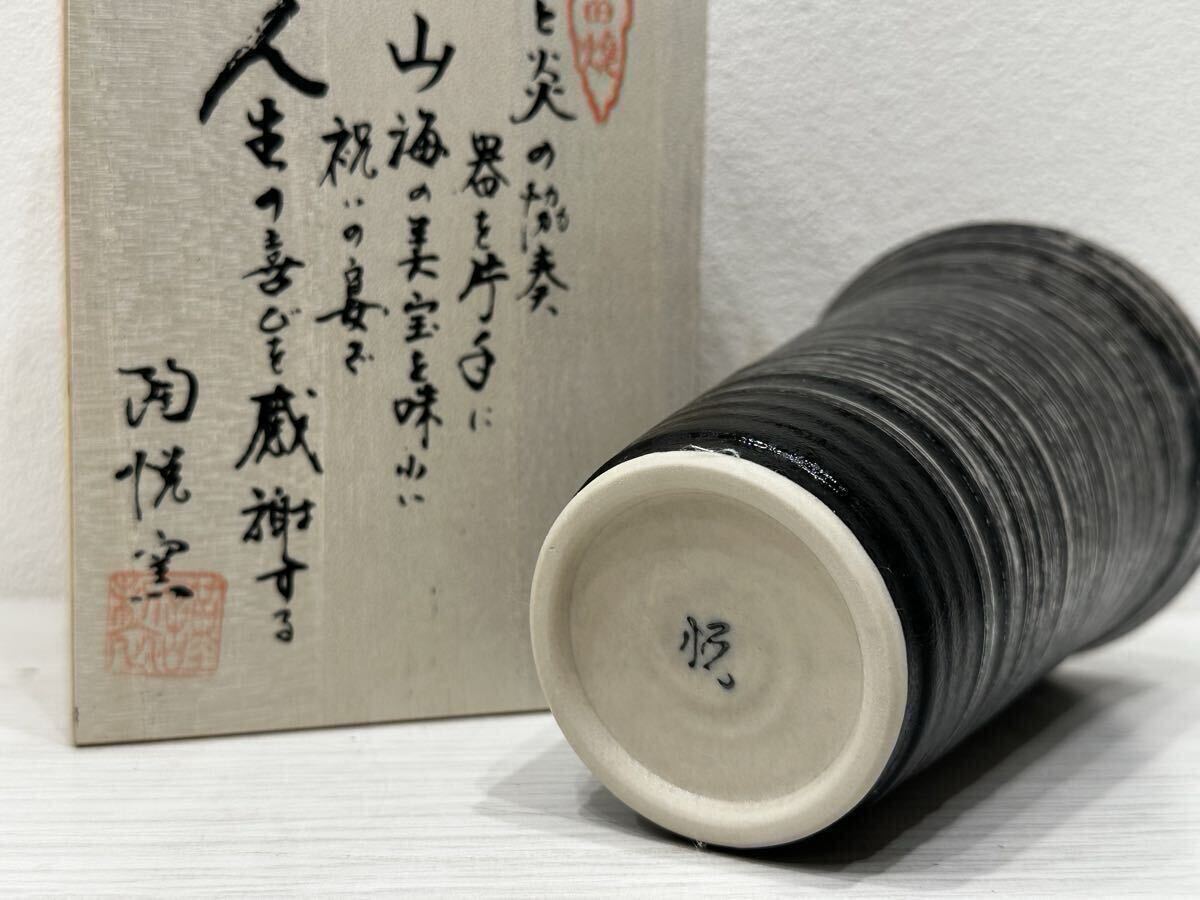 田焼
と炎の協奏
器を片手に
山海の美宝を味わい
祝いの宴で
人生の喜びを感謝する
陶悦窯
悦